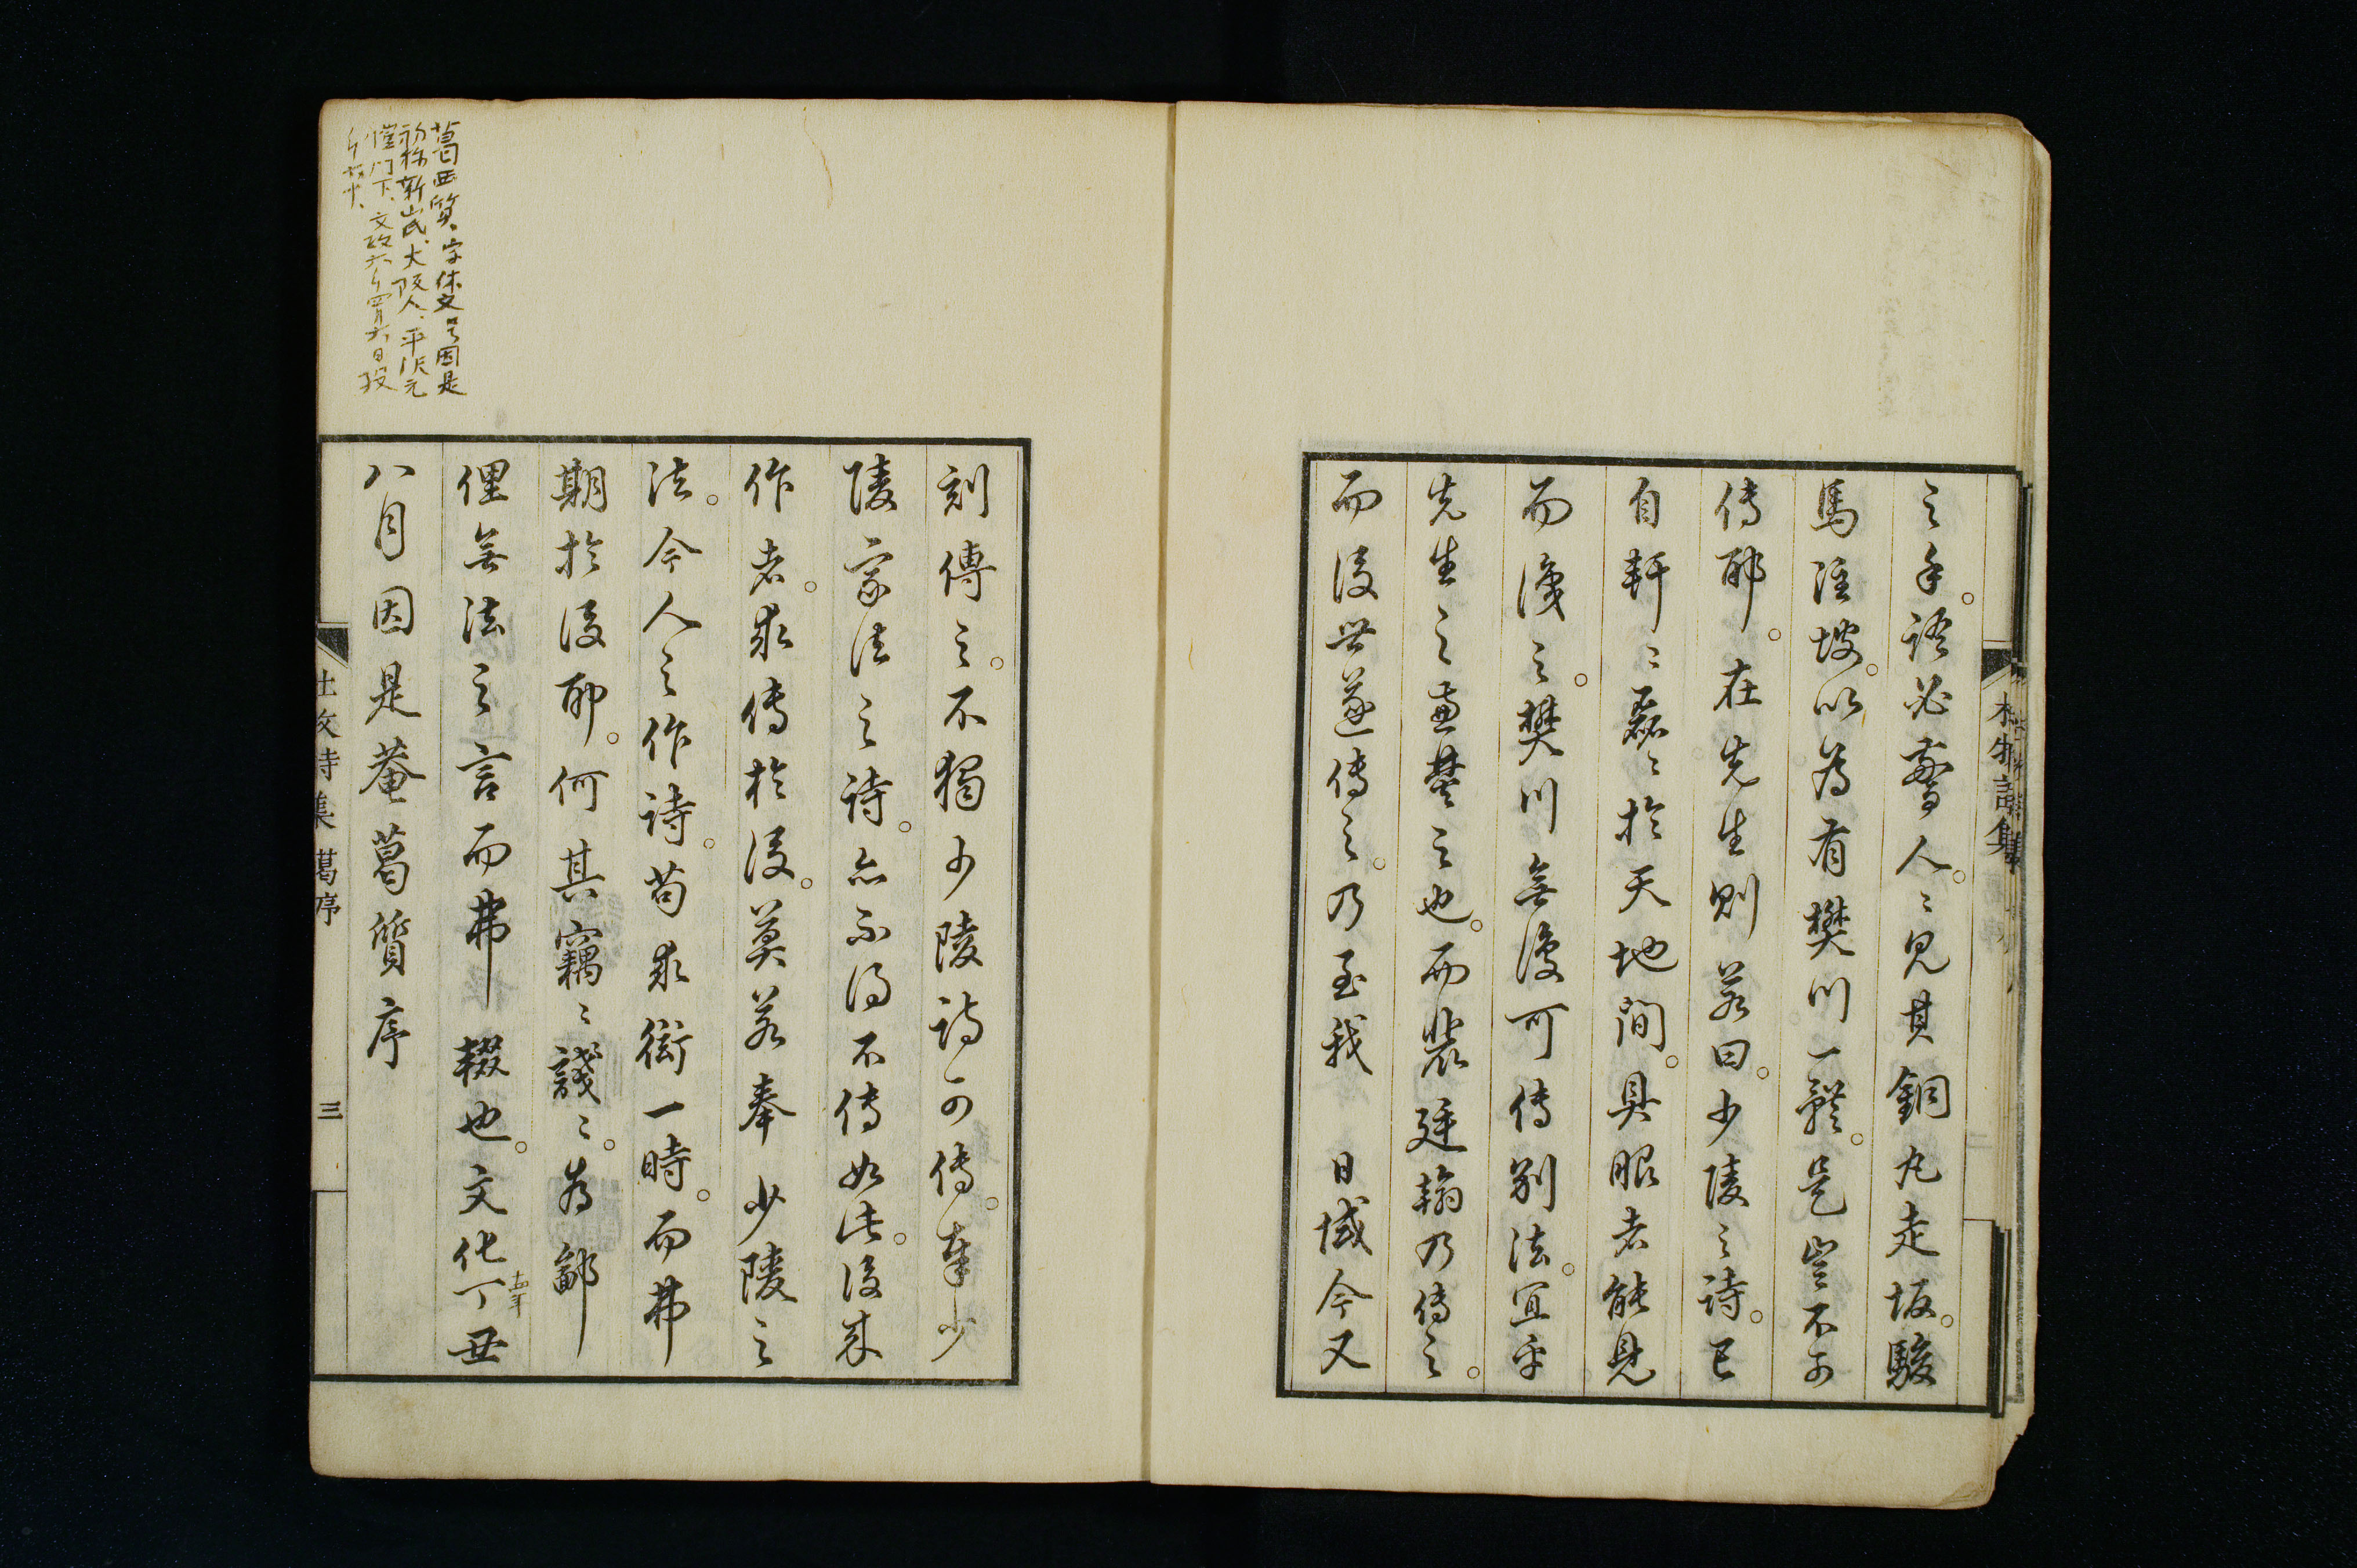 之手。語必驚人。々見其銅丸走坂。駿
馬注坡。以為有樊川一體。是豈不可
傳耶。在先生則若曰。少陵之詩。已
自軒々磊々於天地間。具眼者能見
而識之。樊川無復可傳別法。宜乎
先生之焚之也。而裴延翰乃傳之。
而後世遂傳之。乃至我 日域今又
刻傳之。不獨少陵詩可傳。奉少
陵家法之詩。亦不得不傳如此。後來
作者。求傳於後。莫若奉少陵之
法。今人之作詩。苟求衒一時。而弗
期於後耶。何其竊々諓々。為鄙
俚無法之言而弗輟也。文化丁丑
十四年
八月因是菴葛質序
杜樊川詩集
杜牧詩集 葛序 三
葛西質、字休文号因是
初称新山氏、大阪人、平沢元
愷門下、文政六年四月六日歿
年六十、